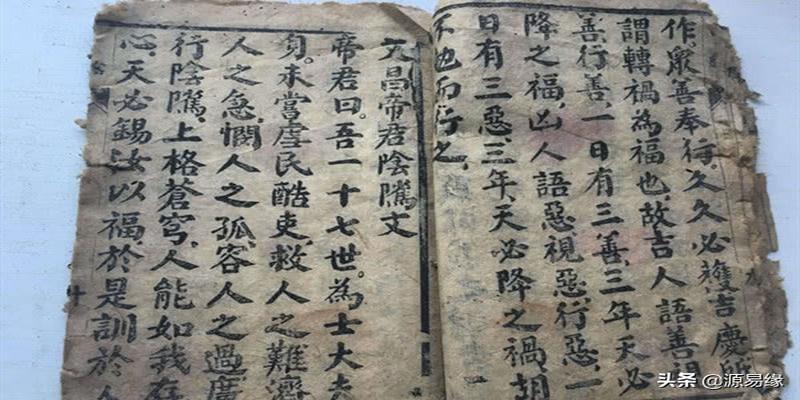 作。眾善奉行。久久必獲吉慶所
謂轉禍為福也。故吉人語善
善。行善。一日有三善。三年天必
降之福。凶人語惡。視惡。行惡。一
日有三惡。三年。天必降之禍。胡
不也而行之。
文昌帝君陰隲文
帝君曰。吾一十七世。為士大夫
未嘗虐民酷吏。救人之難濟
人之急。憫人之孤。容人之過。廣
行陰隲。上格蒼穹。人能如我存
心。天必錫汝以福。於是訓於人
头条 @源易缘